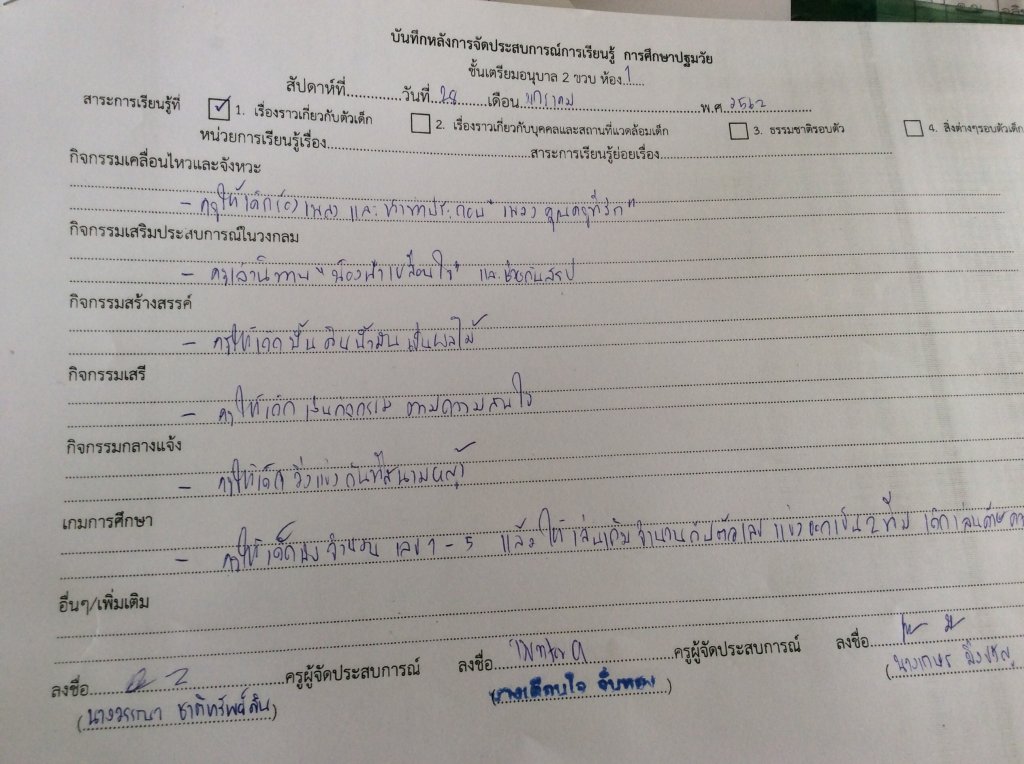 บันทึกหลังการจัดประสบการณ์การเรียนรู้ การศึกษาปฐมวัย
ชั้นเตรียมอนุบาล 2 ขวบ ห้อง 1
สัปดาห์ที่ วันที่ 28 เดือน มกราคม พ.ศ 2562
สาระการเรียนรู้ที่ 1. เรื่องราวเกี่ยวกับตัวเด็ก 2. เรื่องราวเกี่ยวกับบุคคลและสถานที่แวดล้อมเด็ก 3. ธรรมชาติรอบตัว 4. สิ่งต่างๆรอบตัวเด็ก
หน่วยการเรียนรู้เรื่อง สาระการเรียนรู้ย่อยเรื่อง
กิจกรรมเคลื่อนไหวและจังหวะ
- ครูให้เด็กร้องเพลง และ ประกอบ "เพลง คุณครูที่รัก"
กิจกรรมเสริมประสบการณ์ในวงกลม
- ครูเล่านิทาน และช่วยกันสรุป
กิจกรรมสร้างสรรค์
- ครูให้เด็ก ปั้น ดินน้ำมัน เป็นผลไม้
กิจกรรมเสรี
- ครูให้เด็ก เล่นกิจกรรม ตามความสนใจ
กิจกรรมกลางแจ้ง
- ครูให้เด็ก วิ่งแข่งกันที่สนามหญ้า
เกมการศึกษา
- ครูให้เด็ก จำนวน เลข 1 - 5 แล้วให้เล่นเกม จำนวนกับตัวเลข แบ่งออกเป็น 2 ทีม
อื่นๆ/เพิ่มเติม
ลงชื่อ ครูผู้จัดประสบการณ์ ลงชื่อ ครูผู้จัดประสบการณ์ ลงชื่อ
(นางวรรณา ชาติทรัพย์สิน) (นางเตือนใจ จับทอง) (นางเกษร